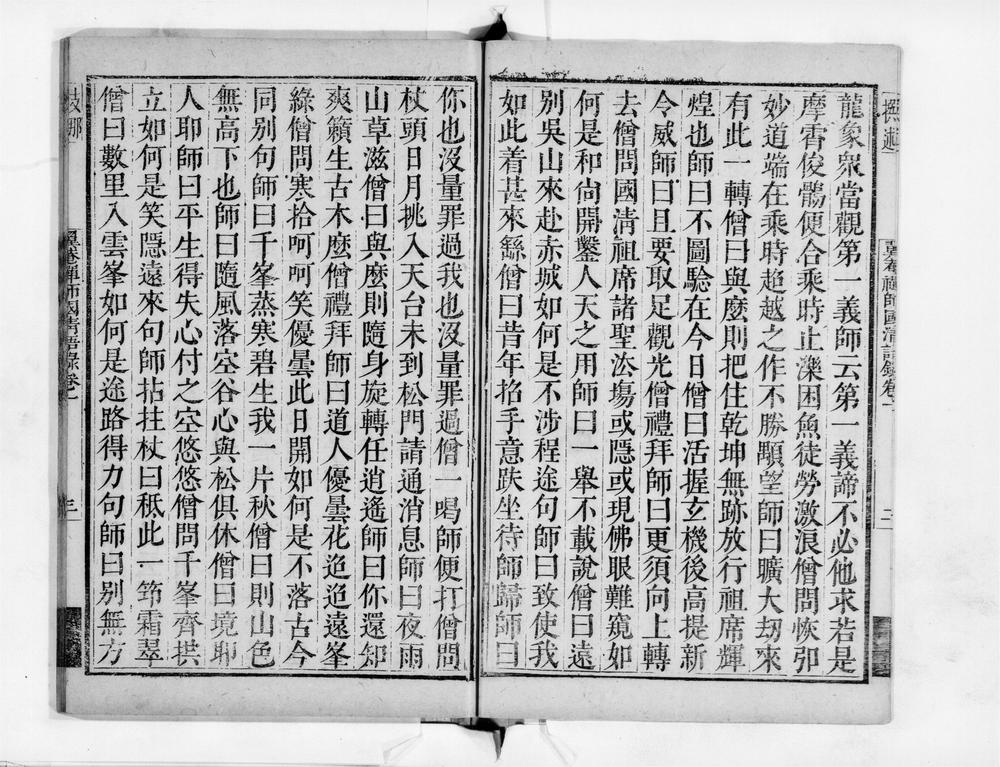 龍象衆當觀第一義師云第一義諦不必他求若是
摩霄俊鶻便合乘時止濼困魚徒勞激浪僧問恢弶
妙道端在乘時超越之作不勝顒望師曰曠大刼來
有此一轉僧曰與麽則把住乾坤無跡放行祖席輝
煌也師曰不圖驗在今日僧曰活握玄機後高提新
令威師曰且要取足觀光僧禮拜師曰更須向上轉
去僧問國淸祖席諸聖㳒塲或隱或現佛眼難窺如
何是和尙開鑿人天之用師曰一舉不載說僧曰遠
別吳山來赴赤城如何是不涉程途句師曰致使我
如此着甚來繇僧曰昔年掐手意趺坐待師歸師曰
你也沒量罪過我也沒量罪過僧一喝師便打僧問
杖頭日月挑入天台未到松門請通消息師曰夜雨
山草滋僧曰與麽則隨身旋轉任逍遙師曰你還知
爽籟生古木麽僧禮拜師曰道人優曇花迢迢遠峯
綠僧問寒拾呵呵笑優曇此日開如何是不落古今
同別句師曰千峯蒸寒碧生我一片秋僧曰則山色
無高下也師曰隨風落空谷心與松俱休僧曰境卽
人耶師曰平生得失心付之空悠悠僧問千峯齊拱
立如何是笑隱遠來句師拈拄杖曰秪此一筇霜翠
僧曰數里入雲峯如何是途路得力句師曰別無方
卷禪師國淸語錄卷一
二
三